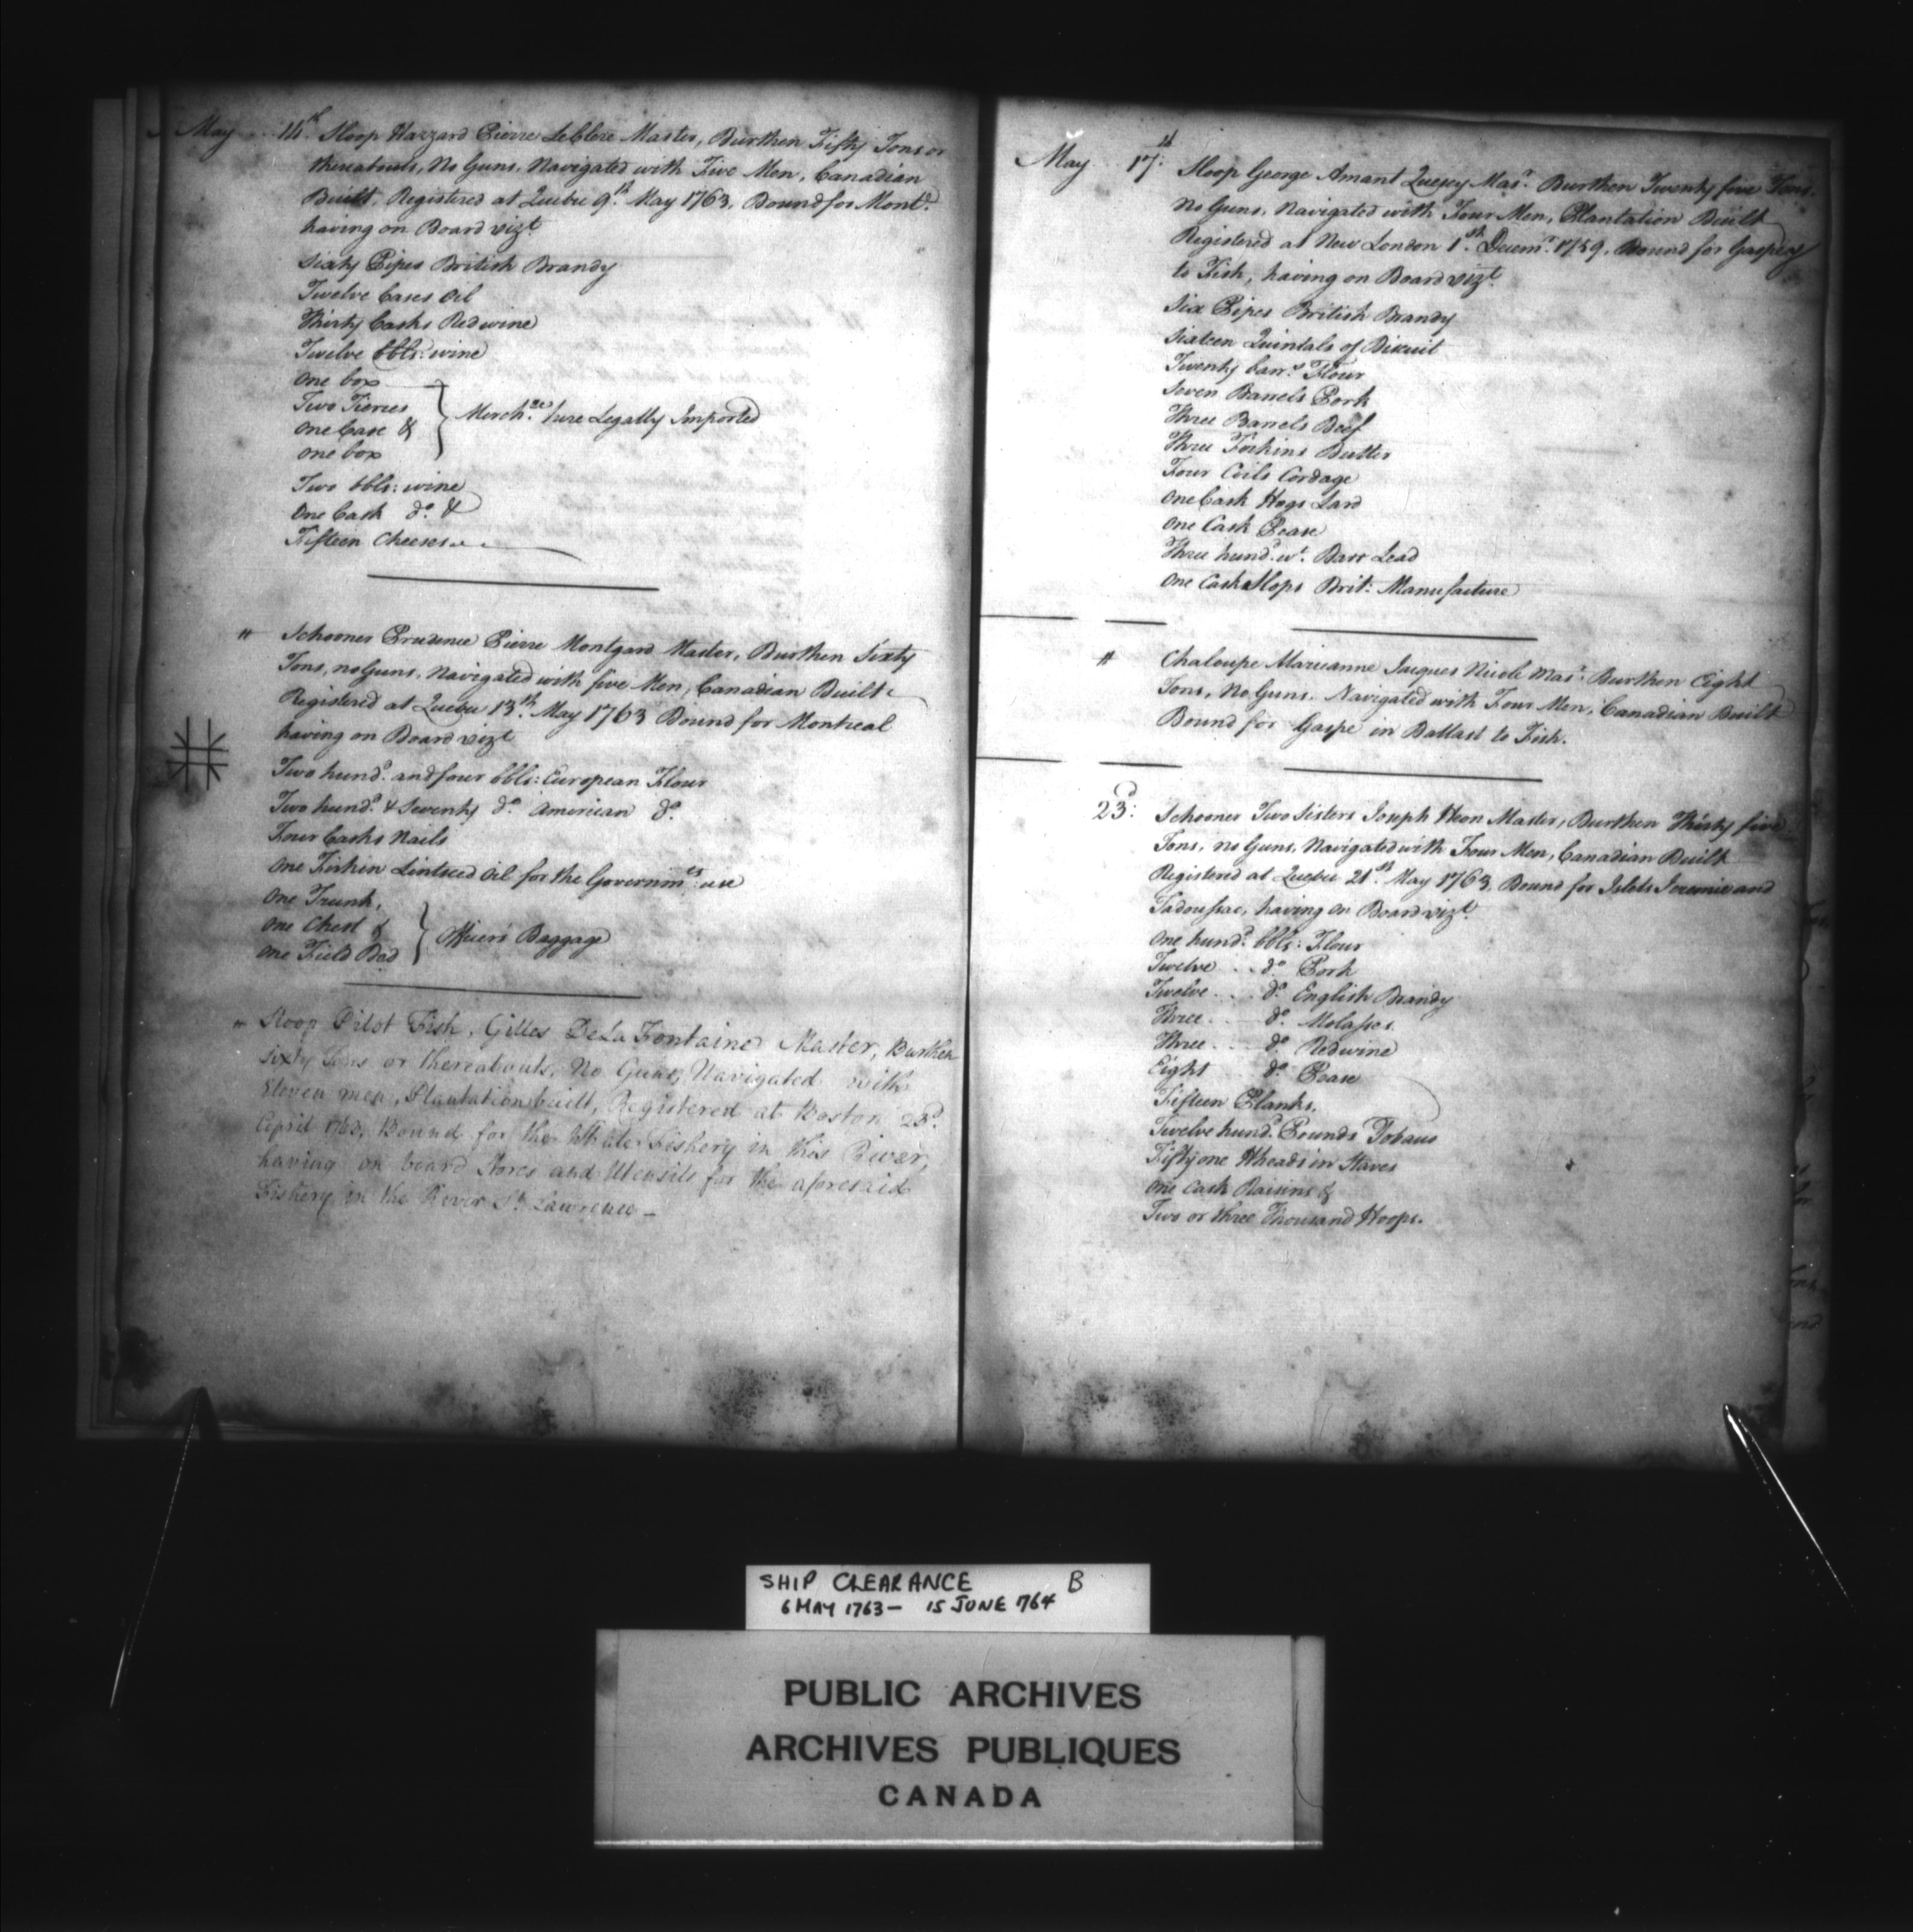 May 14th Sloop Hazzard Pierre Leblere Master, Burthen Fifty Tons or
thereabouts, No Guns, Navigated with Five Men, Canadian
Built, Registered at Quebec 9th May 1763, Bound for Mont.l
having on Board vizt
Sixty Pipes British Brandy
Twelve Cases Oil
Thirty Casks Red wine
Twelve bbls: wine
One box
Two Tierces
One Case &
one box
Merch.ze here Legally Imported
Two bbls: wine
One Cask do. &
Fifteen Cheeses
" Schooner Prudence Pierre Montgard Master, Burthen Sixty
Tons, no Guns, Navigated with five Men, Canadian Built
Registered at Quebec 13th May 1763 Bound for Montreal
having on Board vizt
Two hund.d and four bbls: European Flour
Two hund.d & Seventy do American do.
Four Casks Nails
One Firkin Lintseed Oil for the Governm.ts use
One Trunk,
One Chest &
One Field Bed
Officers Baggage
" Sloop Pilot Fish, Gilles De La Fontaine Master, Burthen
Sixty Tons or thereabouts, No Guns, Navigated with
Eleven men, Plantation built, Registered at Boston 23d.
April 1763, Bound for the Whale Fishery in this River,
having on board Stores and Utensils for the aforesaid
Fishery in the River St. Lawrence –
May 17th: Sloop George Amant Quesey Mas.r Burthen Twenty five Tons.
No Guns, Navigated with Four Men, Plantation Built
Registered at New London 1st. Decem.r 1759, Bound for Gaspey
to Fish, having on Board vizt.
Six Pipes British Brandy
Sixteen Quintals of Biscuit
Twenty barr.s Flour
Seven Barrels Pork
Three Barrels Beef
Three Firkins Butter
Four Coils Cordage
One Cask Hogs Lard
One Cask Pease
Three hund.d wt. Barr Lead
One Cask Slops Brit: Manufacture
" Chaloupe Marieanne Jacques Nicole Mas.r Burthen Eight
Tons, No Guns. Navigated with Four Men, Canadian Built
Bound for Gaspe in Ballast to Fish.
23d: Schooner Two Sisters Joseph Heon Master, Burthen Thirty five
Tons, no Guns, Navigated with Four Men, Canadian Built
Registered at Quebec 21st. May 1763, Bound for Islets Jeremie and
Tadoussac, having on Board vizt.
One hund.d bbls: Flour
Twelve .. do. Pork
Twelve ... do. English Brandy
Three ... do. Molasses.
Three ... do. Red wine
Eight do. Pease
Fifteen Planks.
Twelve hund.d Pounds Tobacco
Fifty one Hheads in Staves
One Cask Raisins &
Two or three Thousand Hoops.
SHIP CLEARANCE B
6 MAY 1763 – 15 JUNE 764
PUBLIC ARCHIVES
ARCHIVES PUBLIQUES
CANADA